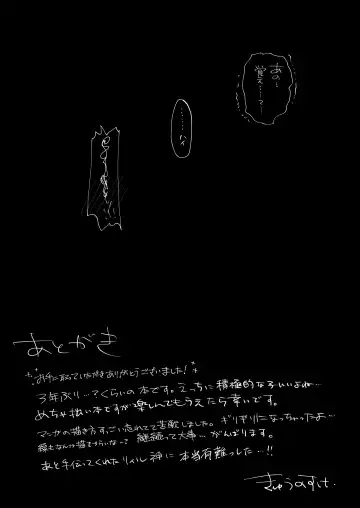 あの…
覚え……マ…
………ハイ
あとがき
お手に取っていただきありがとうございました!
3年ぶり…?くらいの本です。えっちに積極的な子いいよね…
めちゃ拙い本ですが楽しんでもらえたら幸いです。
マンガの描き方すっごい忘れてて苦戦しました。ギリギリになっちゃったよ…
継続って大事…がんばります。
あと手伝ってくれたリアル神に本当有難うした…!!
きゅうのすけ.